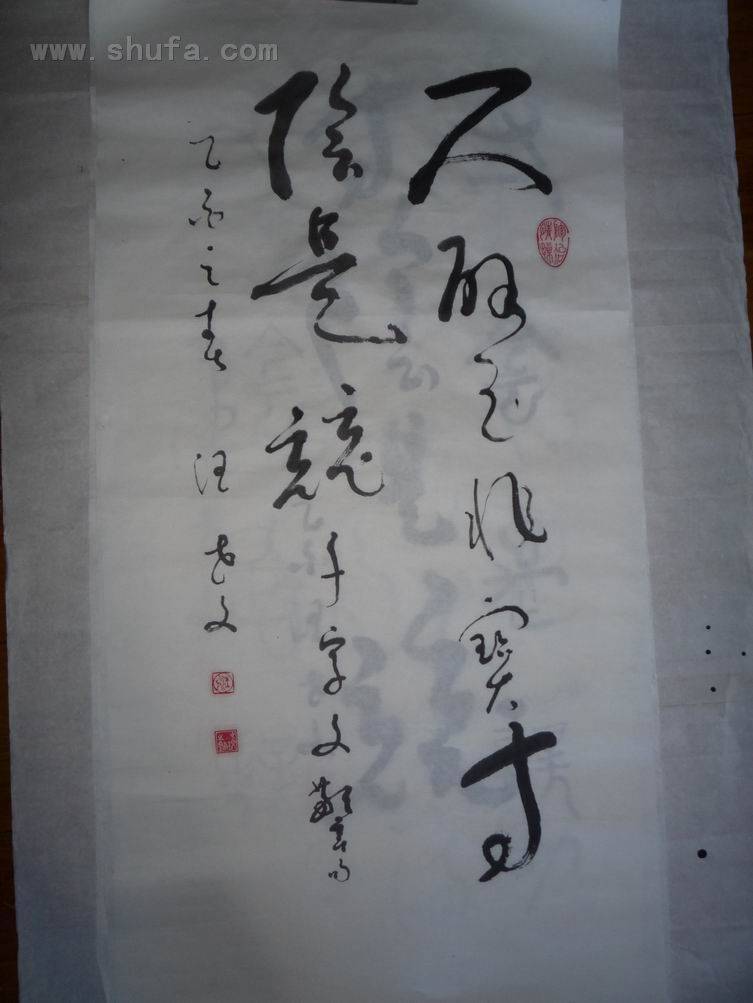 www.shufa.com
尺璧非寶寸
陰是競 千字文警句
乙亥之春 汪孝文